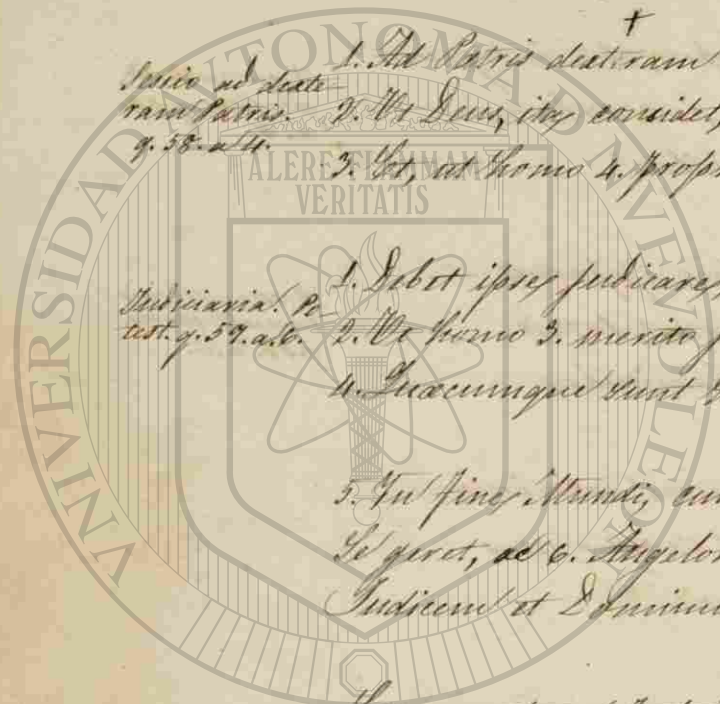 Sessio ad dexte
ram Patris.
q. 58. a. 4.
1. Ad Patris dexteram
2. Ut Deus, itaq considet,
3. Et, ut homo 4. prop
Judiciaria. Po
test. q. 59. a. 6.
1. Debet ipse judicare
2. Ut homo 3. merito
4. Quæcumque sunt
5. In fine Mundi, cu
Se geret, ac 6. Angelo
Judicem et Dominu
UNIVERSIDAD AUTONOMA DE NUEVO LEON
ALERE FLAMMAM
VERITATIS